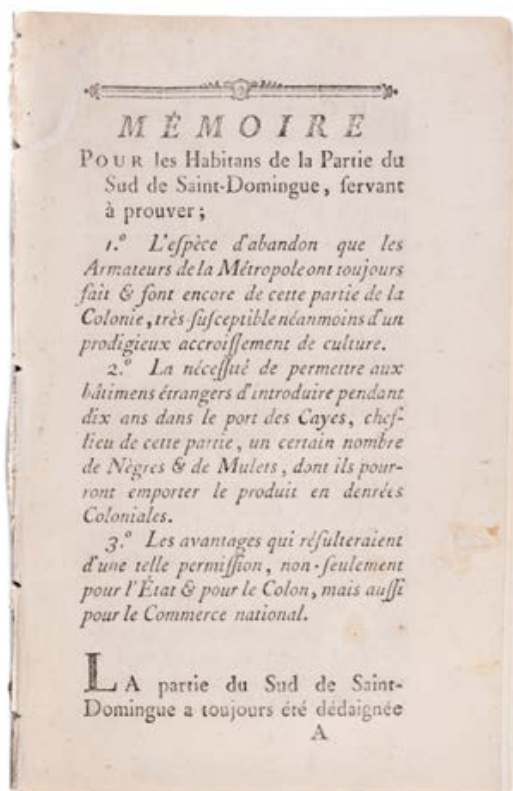 MÉMOIRE
POUR les Habitans de la Partie du
Sud de Saint-Domingue, ſervant
à prouver;
1.º L'eſpèce d'abandon que les
Armateurs de la Métropole ont toujours
fait & font encore de cette partie de la
Colonie, très-ſuſceptible néanmoins d'un
prodigieux accroiſſement de culture.
2.º La néceſſité de permettre aux
bâtimens étrangers d'introduire pendant
dix ans dans le port des Cayes, chef-
lieu de cette partie, un certain nombre
de Nègres & de Mulets, dont ils pour-
ront emporter le produit en denrées
Coloniales.
3.º Les avantages qui réſulteraient
d'une telle permiſſion, non-ſeulement
pour l'État & pour le Colon, mais auſſi
pour le Commerce national.
LA partie du Sud de Saint-
Domingue a toujours été dédaignée
A